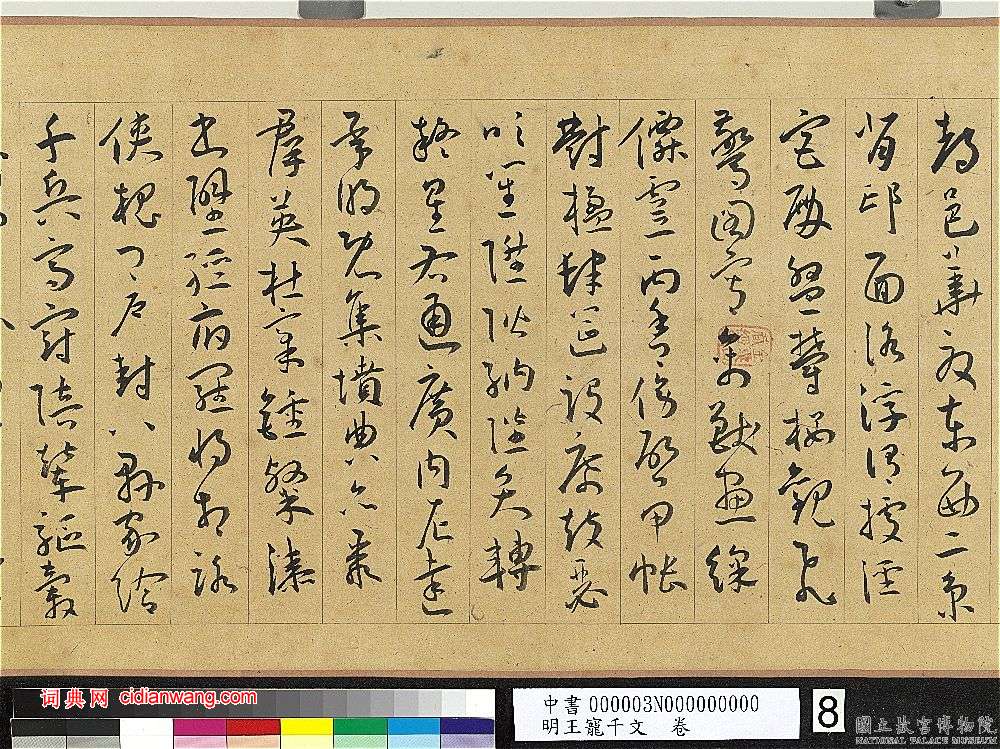 都邑華夏東西二京
背邙面洛浮渭據涇
宮殿盤鬱樓觀飛
驚圖寫禽獸畫綵
僊靈丙舍傍啟甲帳
對楹肆筵設席鼓瑟
吹笙陞階納陛弁轉
疑星右通廣內左達
承明既集墳典亦聚
羣英杜稾鍾隸漆
書壁經府羅將相路
俠槐卿戶封八縣家給
千兵高冠陪輦驅轂
词典网 cidianwang.com
中書 000003N000000000
明王寵千文 卷
8
國立故宮博物院
NATIONAL PALACE MUSEUM